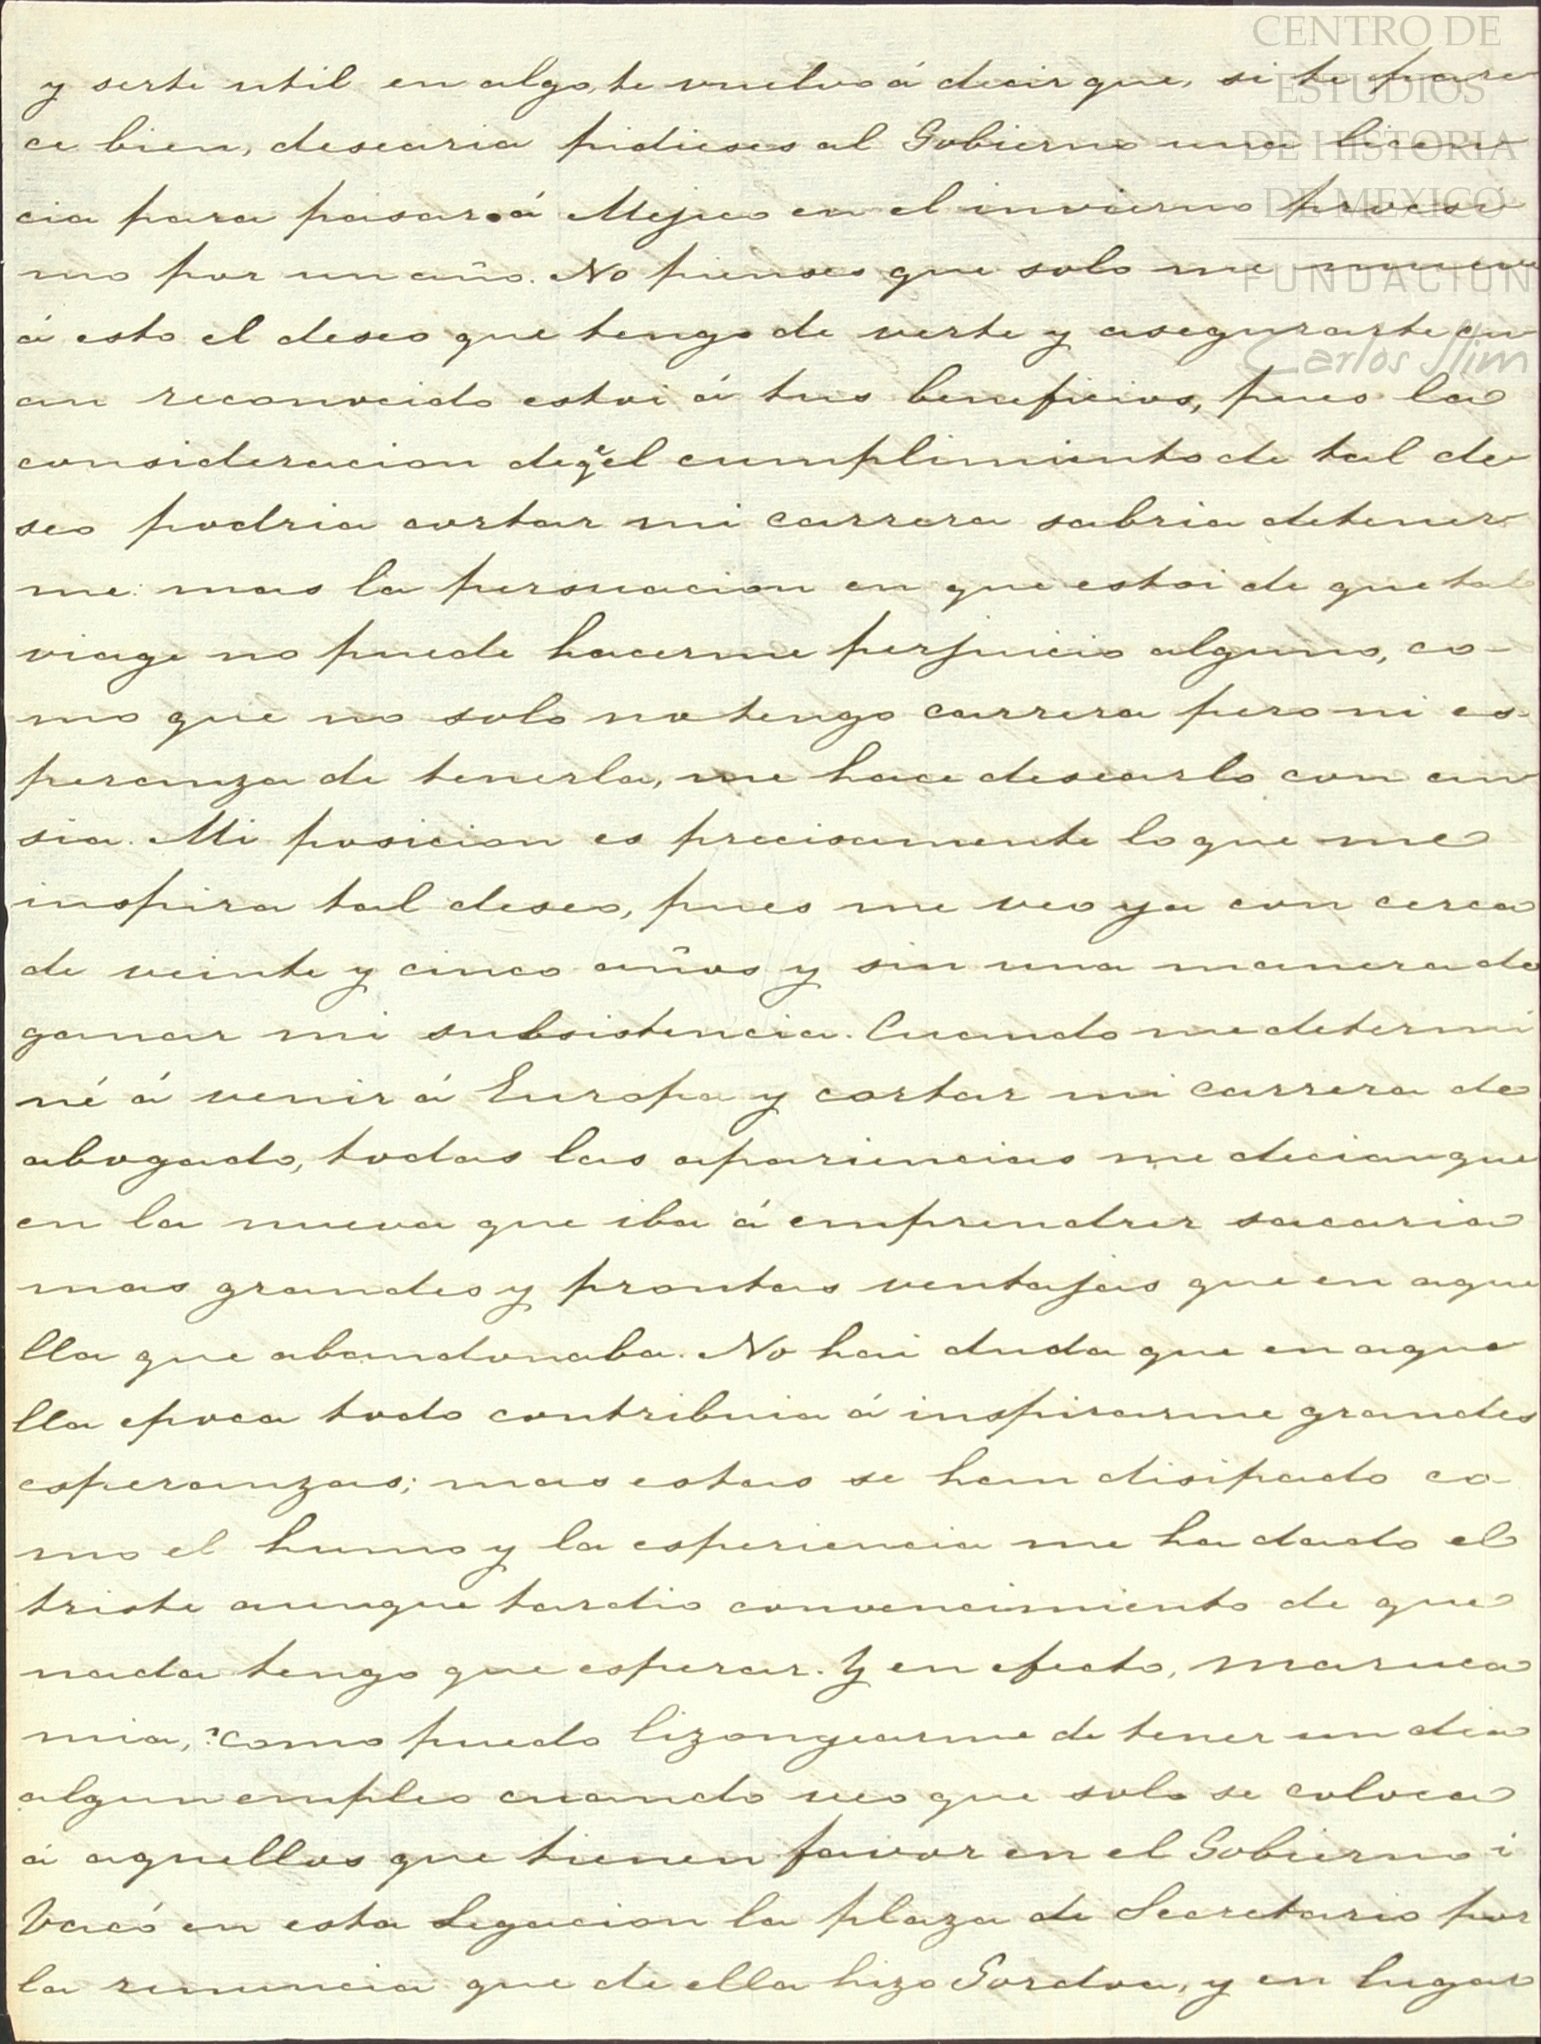 CENTRO DE
ESTUDIOS
DE HISTORIA
DE MEXICO
FUNDACION
Carlos Slim
y serte util en algo, te vuelvo á decir que, si te pare
ce bien, desearia pidieses al Gobierno una licen
cia para pasar á Mejico en el invierno procsi
mo por un año. No pienses que solo me mueve
á esto el deseo que tengo de verte y asegurarte cu
an reconocido estoi á tus beneficios, pues la
consideracion de qe el cumplimiento de tal de
seo podria cortar mi carrera sabria detener
me: mas la persuacion en que estoi de que tal
viage no puede hacerme perjuicio alguno, co-
mo que no solo no tengo carrera pero ni es-
peranza de tenerla, me hace desearlo con an
sia. Mi posicion es precisamente lo que me
inspira tal deseo, pues me veo ya con cerca
de veinte y cinco años y sin una manera de
ganar mi subsistencia. Cuando me determi
né á venir á Europa y cortar mi carrera de
abogado, todas las apariencias me decian que
en la nueva que iba á emprendrer sacaria
mas grandes y prontas ventajas que en aque
lla que abandonaba. No hai duda que en aque
lla epoca todo contribuia á inspirarme grandes
esperanzas; mas estas se han disipado co-
mo el humo y la esperiencia me ha dado el
triste aunque tardio convencimiento de que
nada tengo que esperar. Y en efecto, maruca
mia, ?como puedo lizongearme de tener un dia
algun empleo cuando veo que solo se coloca
á aquellos que tienen favor en el Gobierno ¿
Vacó en esta Legacion la plaza de Secretario por
la renuncia que de ella hizo Gordoa, y en lugar